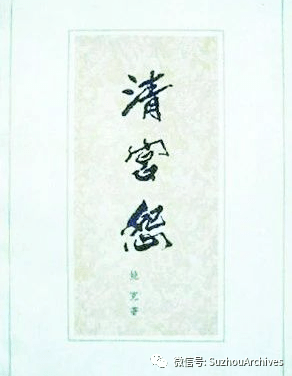 清宫怨
姚克著
微信号: SuzhouArchives